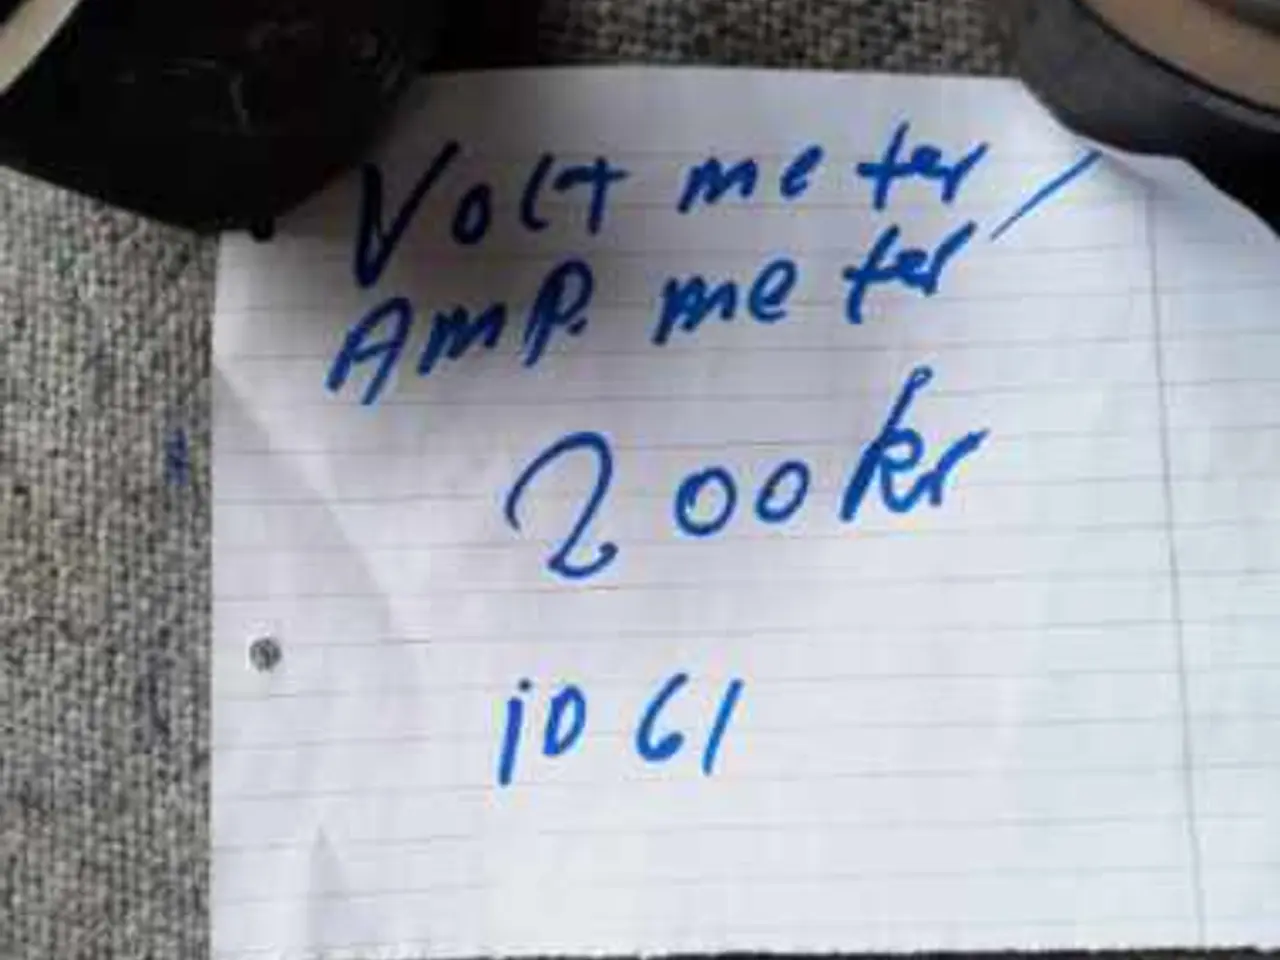 Volt meter/
Amp. meter
200kr
iD 61